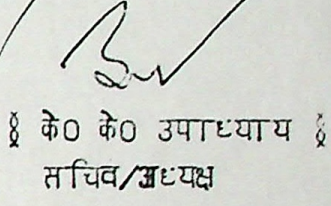 § के0 के0 उपाध्याय §
सचिव/अध्यक्ष